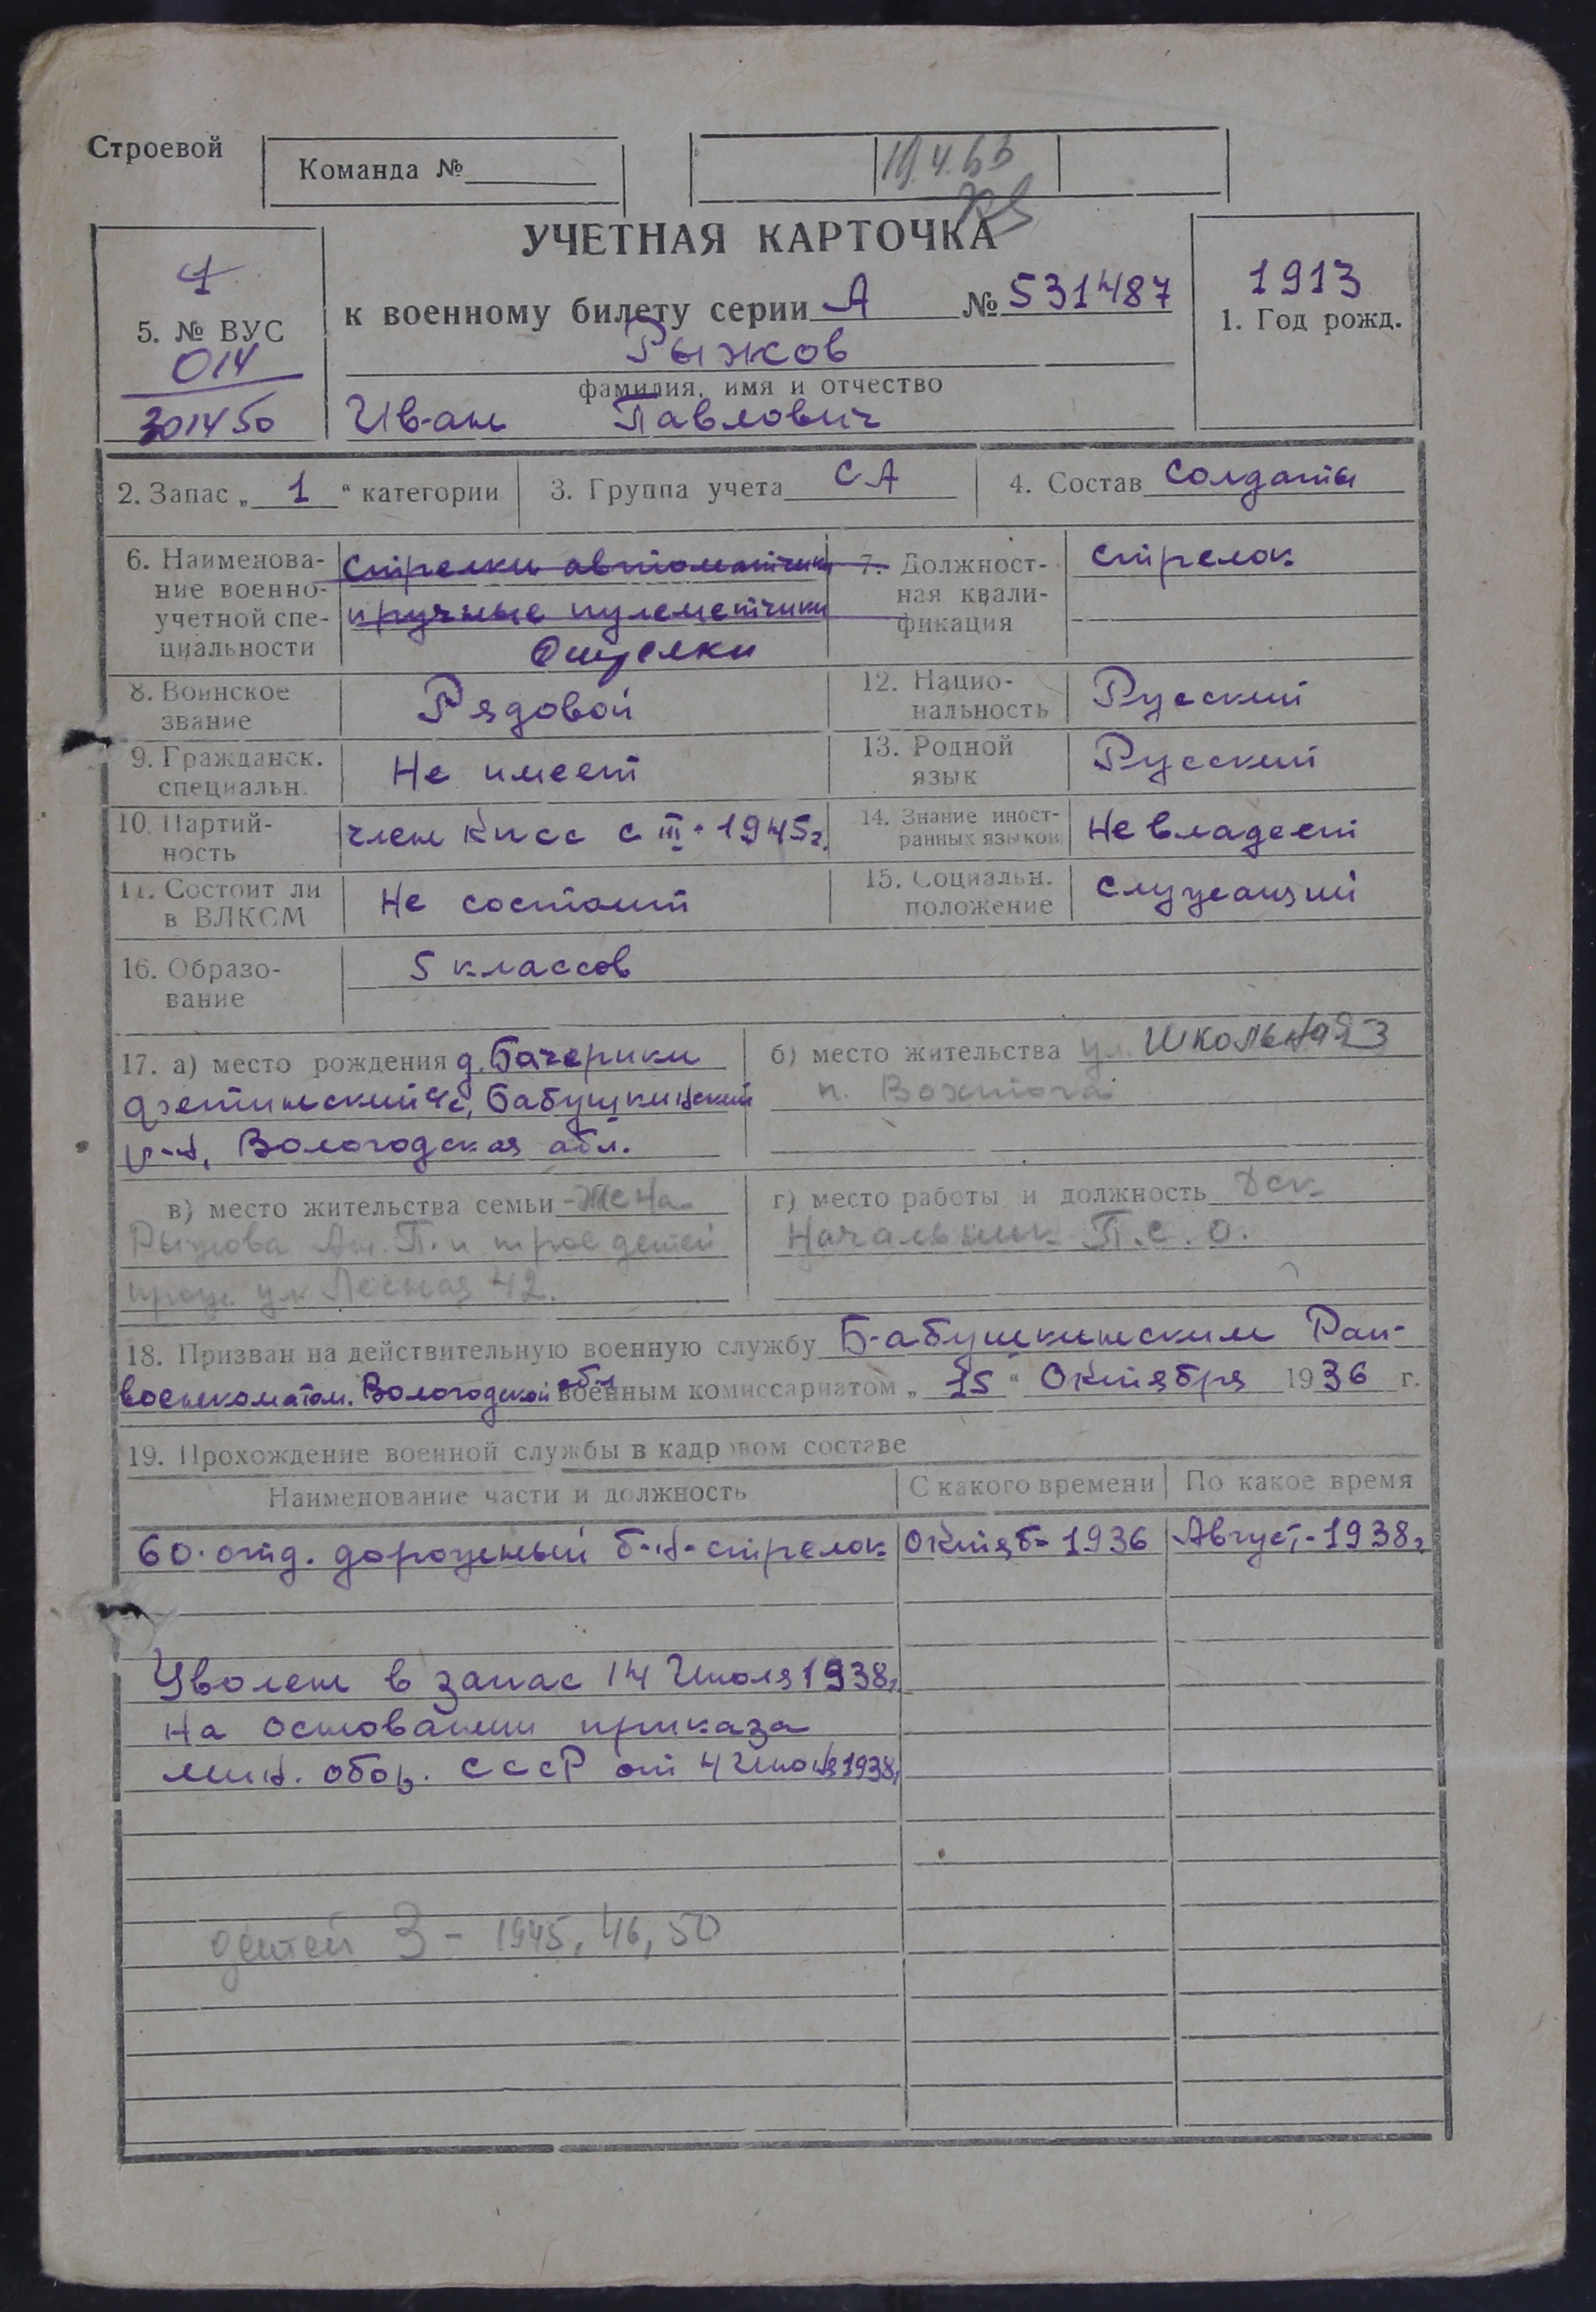 Строевой
Команда №
19.4.66
УЧЕТНАЯ КАРТОЧКА
1
5. № ВУС
014
301450
к военному билету серии А № 531487
Рыжков
фамилия, имя и отчество
Иван Павлович
1913
1. Год рожд.
2. Запас „ 1 “ категории
3. Группа учета СА
4. Состав Солдаты
6. Наименова-
ние военно-
учетной спе-
циальности
Стрелки автоматчики
и ручные пулеметчики
Стрелки
7. Должност-
ная квали-
фикация
стрелок
8. Воинское
звание
Рядовой
12. Нацио-
нальность
Русский
9. Гражданск.
специальн.
Не имеет
13. Родной
язык
Русский
10. Партий-
ность
член Кпсс с III-1945г.
14. Знание иност-
ранных языков
Не владеет
11. Состоит ли
в ВЛКСМ
Не состоит
15. Социальн.
положение
служащий
16. Образо-
вание
5 классов
17. а) место рождения д. Бачерики
с/с, Бабушкинский
р-н, Вологодская обл.
б) место жительства ул. Школьная 3
п. Вохтога
в) место жительства семьи - Жена
Рыжкова Ан. П. и трое детей
прож. ул Лесная 42.
г) место работы и должность Дск
Начальник П.С.О.
18. Призван на действительную военную службу Бабушкинским Рай-
военкоматом. Вологодской обл военным комиссариатом „ 15 “ Октября 1936 г.
19. Прохождение военной службы в кадровом составе
Наименование части и должность
С какого времени
По какое время
60. отд. дорожный б-н-стрелок
Октяб- 1936
Август-1938г
Уволен в запас 14 Июля 1938г
на основании приказа
мин. обор. СССР от 4 Июня 1938г
детей 3 - 1945, 46, 50